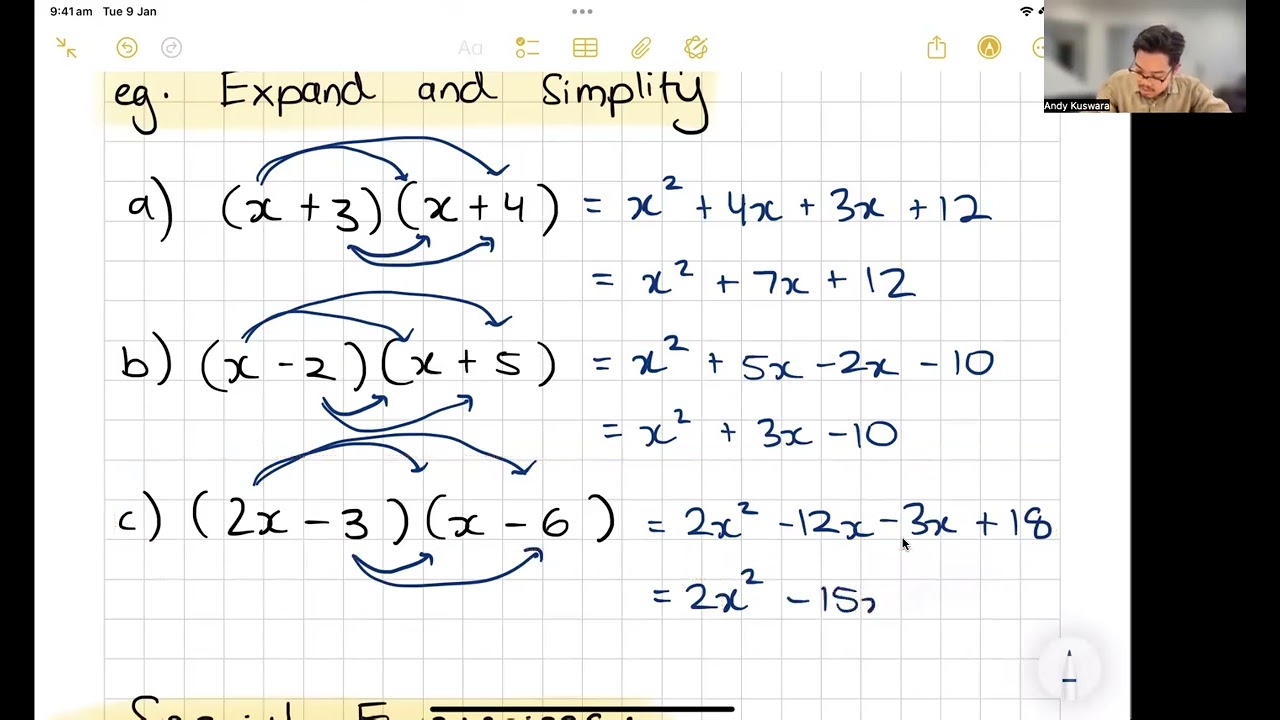 9:41 am Tue 9 Jan
Aa
Andy Kuswara
eg. Expand and Simplify
a) (x + 3)(x + 4) = x² + 4x + 3x + 12
= x² + 7x + 12
b) (x - 2)(x + 5) = x² + 5x - 2x - 10
= x² + 3x - 10
c) (2x - 3)(x - 6) = 2x² - 12x - 3x + 18
= 2x² - 15x